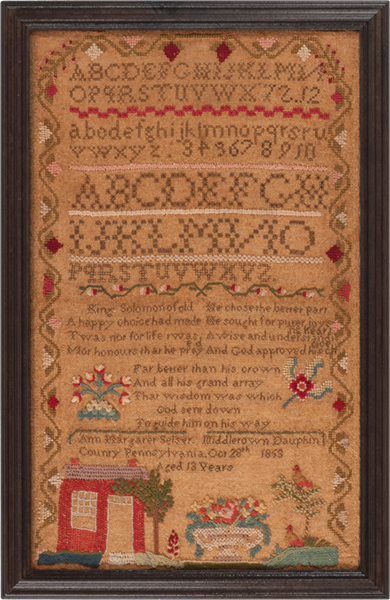 ABCDEFGHIJKLMN
OPQRSTUVWXYZ.12
abcdefghijklmnopqrstu
vwxyz. 3 4 3 6 7 8 9 10
ABCDEFGH
IJKLMNO
PQRSTUVWXYZ.
King Solomon of old He chose the better part
A happy choice had made He sought for purer joys
Twas not for life twas A wise and understanding heart
Nor honours that he pray ed And God approved his choice
Far better than his crown
And all his grand array
That wisdom was which
God sent down
To guide him on his way
Ann Margaret Selser Middletown Dauphin
County Pennsylvania. Oct 28th 1853
Aged 13 Years